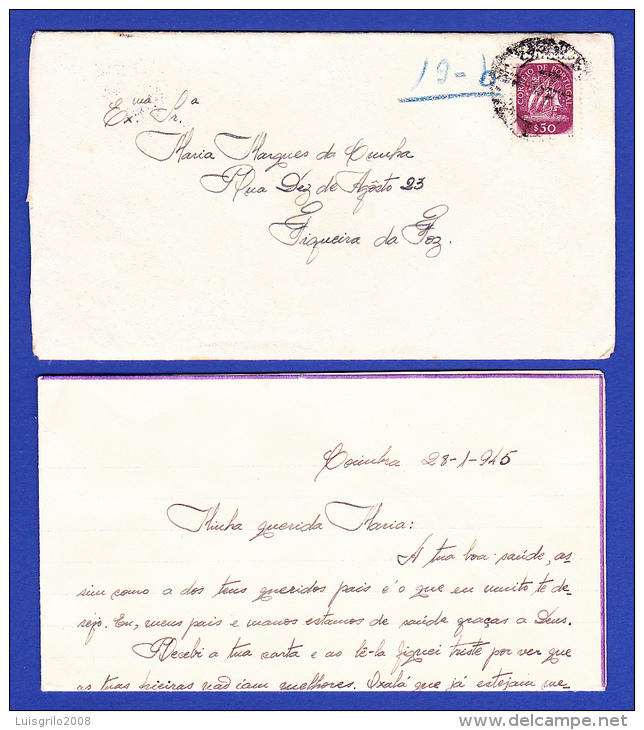 Ex.ma Sr.a
19-6
CORREIO DE PORTUGAL
$50
Maria Marques da Cunha
Rua Dez de Agôsto 23
Figueira da Foz.
Coimbra 28-1-945
Minha querida Maria:
A tua boa saúde, as-
sim como a dos teus queridos pais é o que eu muito te de-
sejo. Eu, meus pais e manos estamos de saúde graças a Deus.
Recebi a tua carta e ao lê-la fiquei triste por ver que
as tuas frieiras vad iam melhores. Oxalá que já estejam me-
Luisgrilo2008
www.delcampe.net